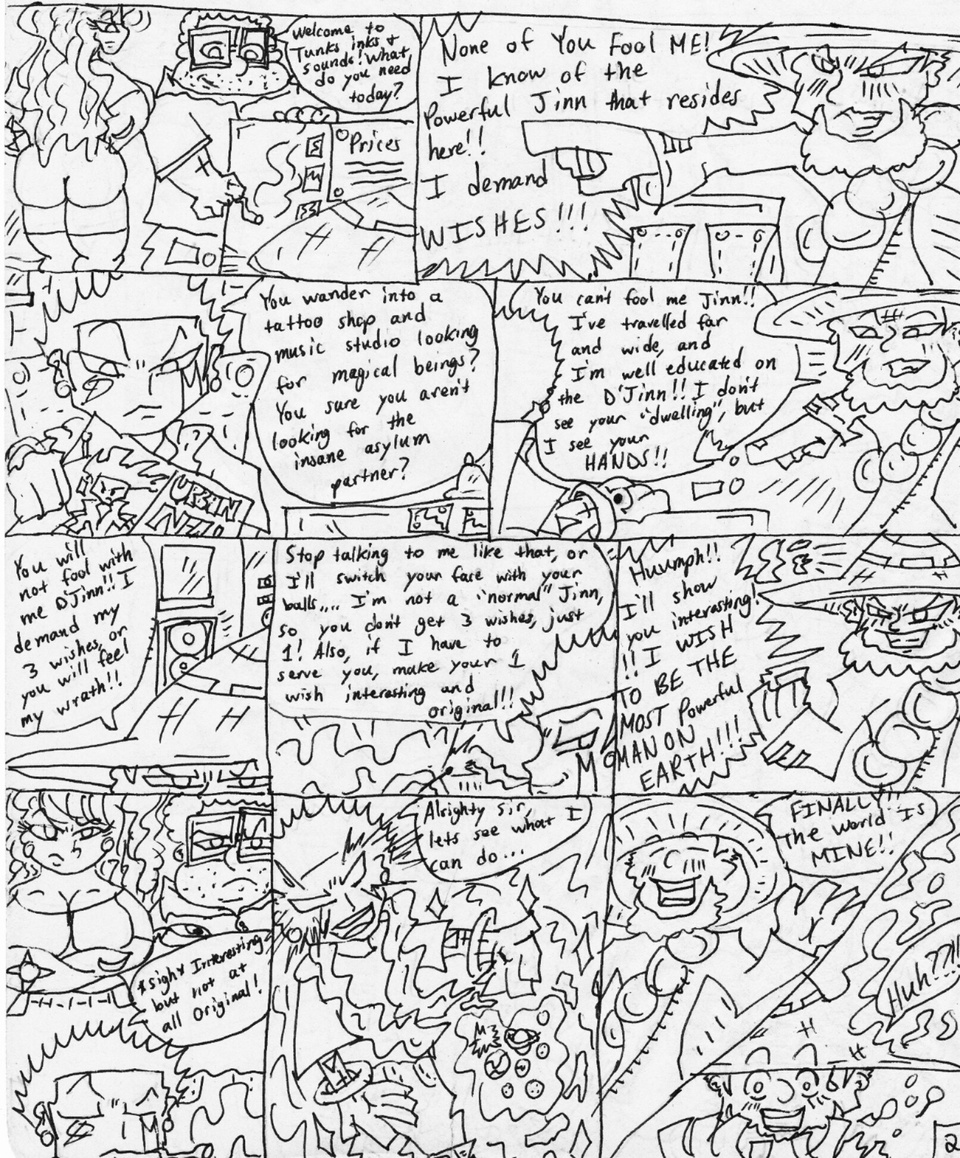 Welcome to
Tunks inks &
sounds! What
do you need
today?
Prices
None of You Fool ME!
I know of the
Powerful Jinn that resides
here!!
I demand
WISHES!!!
You wander into a
tattoo shop and
music studio looking
for magical beings?
You sure you aren't
looking for the
insane asylum
partner?
You can't fool me Jinn!!
I've travelled far
and wide, and
I'm well educated on
the D'Jinn!! I don't
see your "dwelling", but
I see your
HANDS!!
You will
not fool with
me DJinn!! I
demand my
3 wishes, or
you will feel
my wrath!!
Stop talking to me like that, or
I'll switch your face with your
balls.... I'm not a "normal" Jinn,
so you don't get 3 wishes, just
1! Also, if I have to
serve you, make your 1
wish interesting and
original!!!
Huumph!!
I'll show
you interasting!
!! I WISH
TO BE THE
MOST Powerful
MAN ON
EARTH!!!
*sigh* Interesting
but not at
all original!
Alrighty sir,
lets see what I
can do...
FINALLY!!
The world is
MINE!!
Huh??!!
2